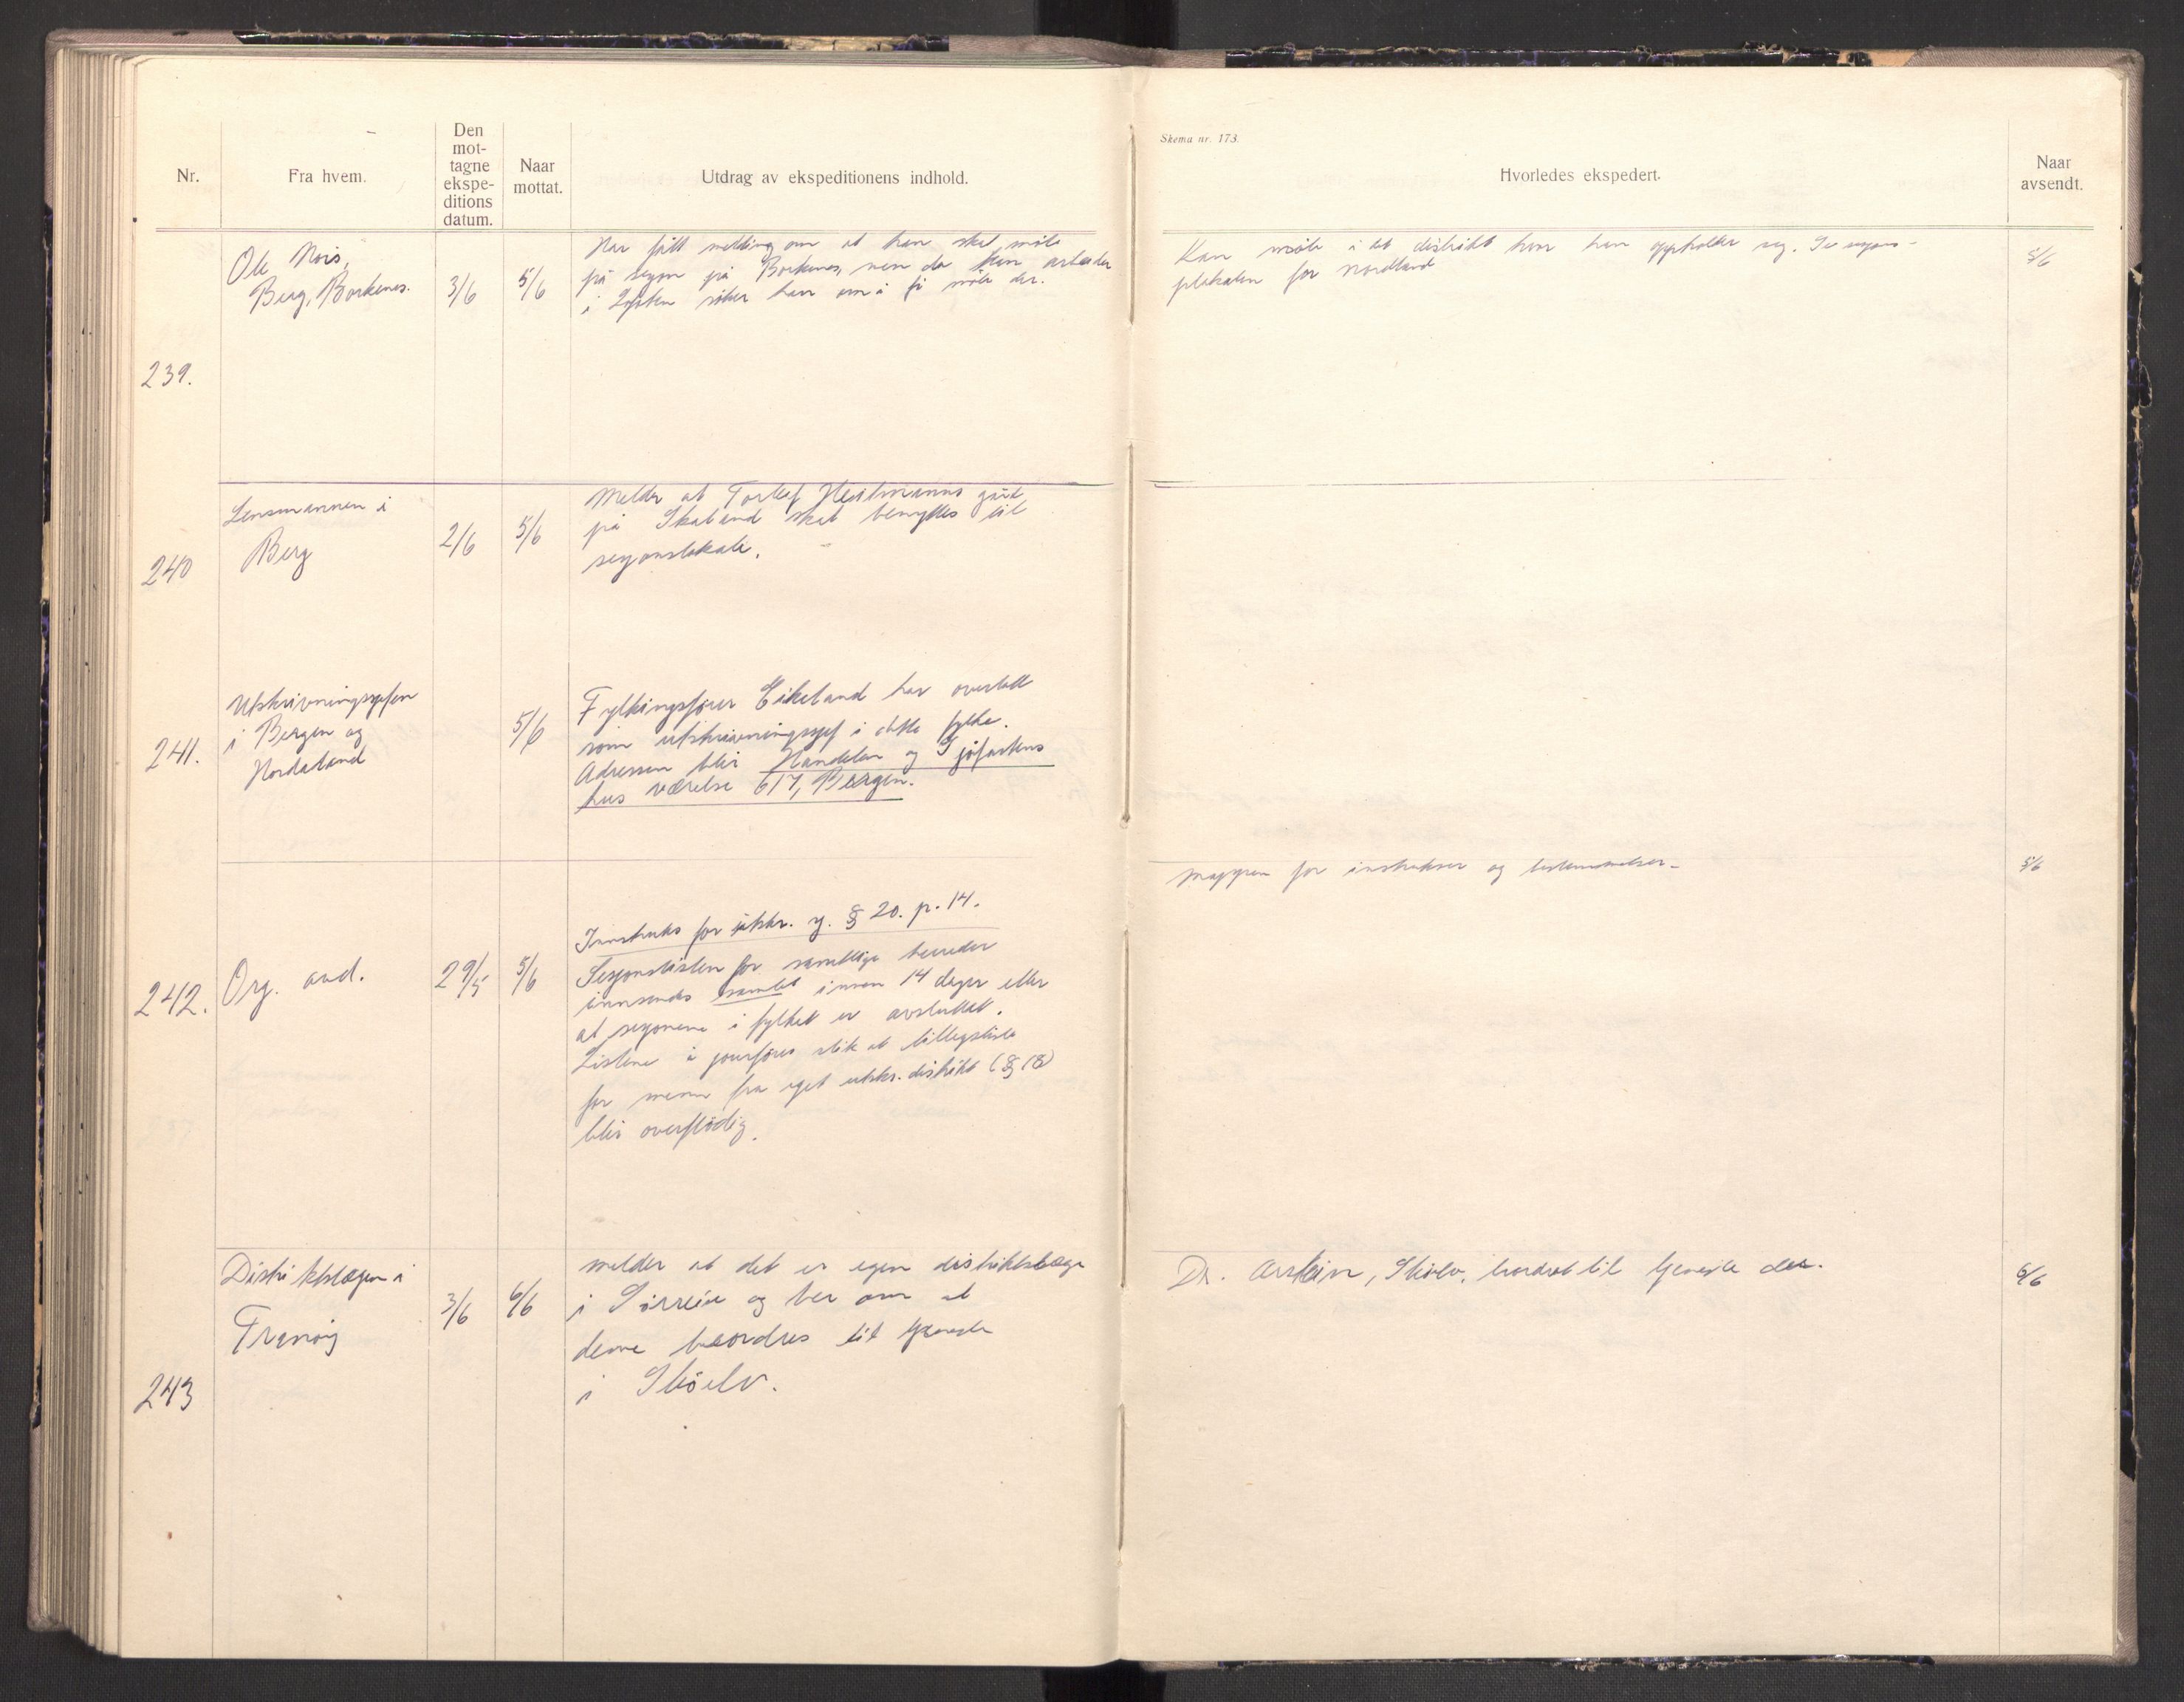 Skema nr. 173.
Nr.
Fra hvem.
Den
mot-
tagne
ekspe-
ditions
datum.
Naar
mottat.
Utdrag av ekspeditionens indhold.
Hvorledes ekspedert.
Naar
avsendt.
239.
Ole Nois,
Berg, Borkenes.
3/6
5/6
Har fått melding om at han skal møte
på sesjon på Borkenes, men da han arbeider
i Lofoten søker han om å få møte der.
Kan møte i det distrikt hvor han oppholder seg. Se sesjons-
plakaten for Nordland
5/6
240
Lensmannen i
Berg
2/6
5/6
Melder at Torleif gård
på Skaland skal benyttes til
sesjonslokale.
241.
Utskrivningssjefen
i Bergen og
Hordaland
5/6
Fylkingsfører Eikeland har overtatt
som utskrivningssjef i dette fylke.
Adressen blir Handelen og Sjøfartens
hus værelse 617, Bergen.
242.
Org. avd.
29/5
5/6
Innstruks for utskr. sj. § 20. p. 14.
Sesjonslisten for samtlige herreder
innsendes samlet innen 14 dager etter
at sesjonene i fylket er avsluttet.
Listene å jourføres slik at tilleggsliste
for menn fra eget utskr. distrikt (§ 18)
blir overflødig.
Mappen for instrukser og bestemmelser.
5/6
243
Distriktslægen i
Tranøy
3/6
6/6
Melder at det er egen distriktslæge
i Sørreisa og ber om at
denne beordres til tjeneste
i Skøelv.
Dr. Skøelv, beordret til tjeneste der.
6/6